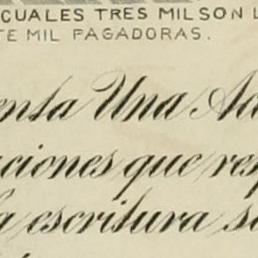 CUALES TRES MIL SON L
TE MIL PAGADORAS.
enta Una Ac
ciones que res
a escritura s